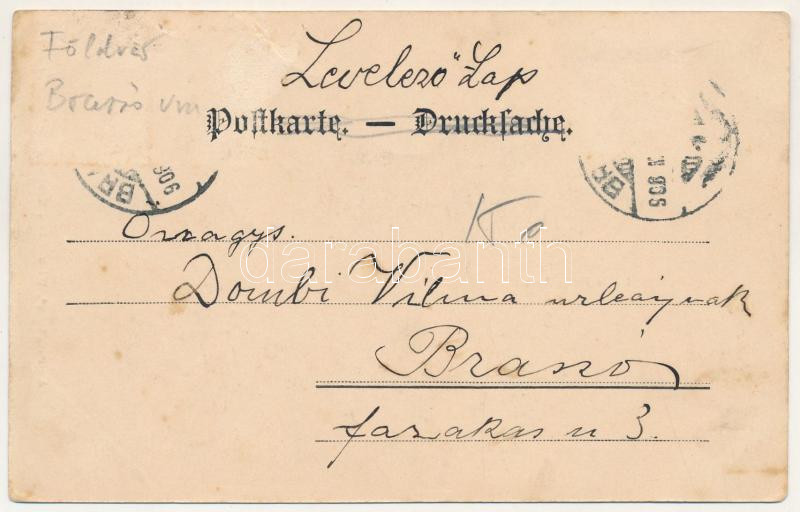 Földvár
Brassó vm
Levelező Lap
Postkarte. — Drucksache.
BR
906
BR
906
Ko
Onagys.
darabanth
Dombi Vilma urleánynak
Brassó
fazakas u 3.